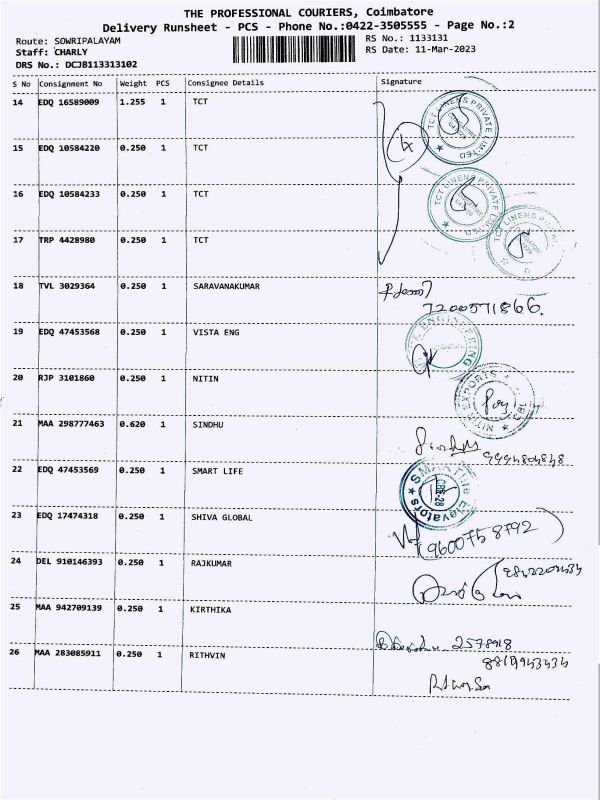 THE PROFESSIONAL COURIERS, Coimbatore
Delivery Runsheet - PCS - Phone No.:0422-3505555 - Page No.:2
Route: SOWRIPALAYAM
RS No.: 1133131
Staff: CHARLY
RS Date: 11-Mar-2023
DRS No.: DCJB113313102
S No Consignment No Weight PCS Consignee Details Signature
14 EDQ 16589009 1.255 1 TCT
TCT LINENS PRIVATE LIMITED
15 EDQ 10584220 0.250 1 TCT
16 EDQ 10584233 0.250 1 TCT
TCT LINENS PRIVATE LIMITED
17 TRP 4428980 0.250 1 TCT
TCT LINENS
18 TVL 3029364 0.250 1 SARAVANAKUMAR
7200571866.
19 EDQ 47453568 0.250 1 VISTA ENG
ENGINEERING
20 RJP 3101860 0.250 1 NITIN
NITIN EXPORTS
21 MAA 298777463 0.620 1 SINDHU
22 EDQ 47453569 0.250 1 SMART LIFE
Elevators
CBE-28
23 EDQ 17474318 0.250 1 SHIVA GLOBAL
9600758792
24 DEL 910146393 0.250 1 RAJKUMAR
25 MAA 942709139 0.250 1 KIRTHIKA
26 MAA 283085911 0.250 1 RITHVIN